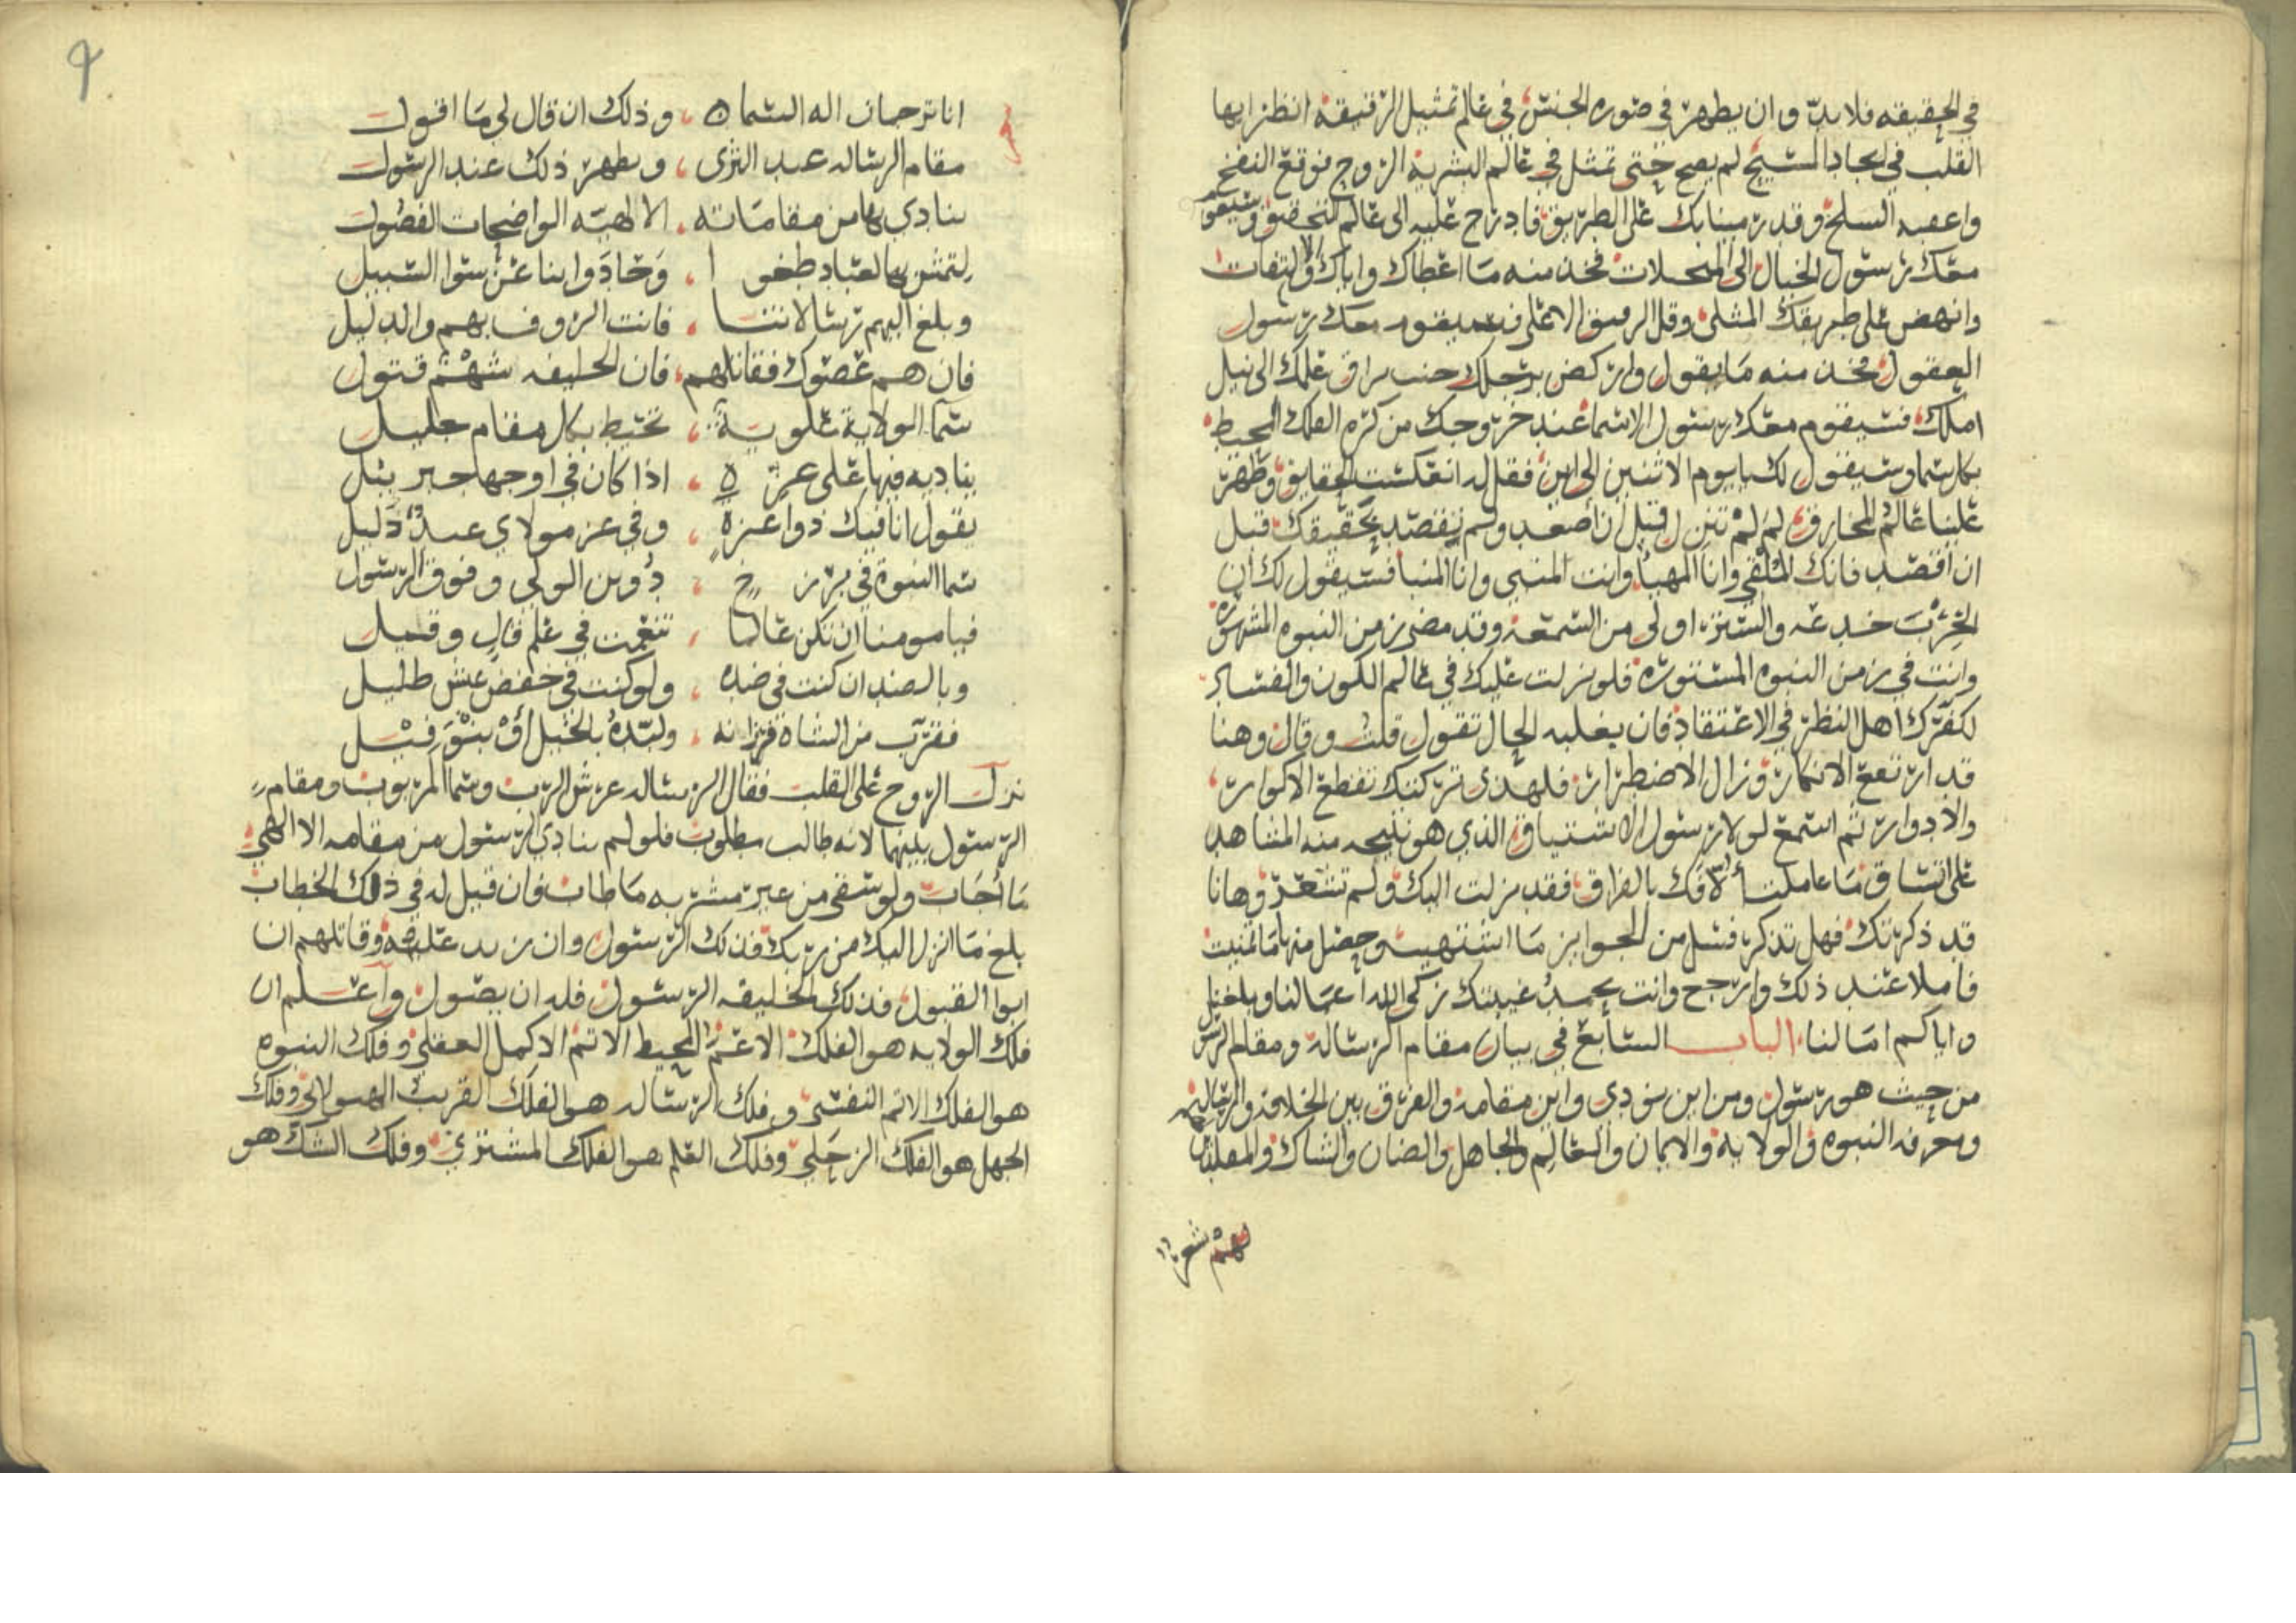 في الحقيقه فلا بد وان يظهر في صوره الجنس في عالم تمثيل الرقيقة انظر ايها
القلب في ايجاد المسيح لم يصح حتى تمثل في عالم البشرية الروح فوقع النفخ
واعقبه السلخ وقد رمينا بك على الطريق فادرج عليه الى عالم التحقيق وسيقوم
معك رسول الخيال الى فخذ منه ما اعطاك واياك والالتفات
وانهض على طريقك المثلى وقل الرفيق الاعلى يقوم معك رسول
العقول فخذ منه ما يقول واركض برجلك جنب براق علمك الى نيل
املك فسيقوم معك رسول الاسما عند خروجك من كره الفلك المحيط
بكل سما وسيقول لك يا يوم الاثنين الى اين فقل له انعكست الحقايق وظهر
علينا عالم المخارق لم لم تنزل قبل ان اصعد ولم تقصد بحقيقتك قبل
ان اقصد فانك الملقي وانا المهيا وانت المنبي وانا المنبا فسيقول لك ان
الحرب خدعه والستر اولى من السمعه وقد مضى زمن النبوه المشهوره
وانت في زمن النبوه المستوره فلو نزلت عليك في عالم الكون والفساد
لكفرك اهل النظر في الاعتقاد فان يغلبه الحال تقول قلت وقال وهنا
قد ارتفع الانكار وزال الاضطرار فلهذى تركتك تقطع الاكوار
والادوار ثم اسمع لولا رسول الاشتياق الذي هو نتيجه منه المشاهد
على اتساق ما عاملناك بالفراق فقد نزلت اليك ولم تشعر وها انا
قد ذكرتك فهل تذكر فسل من الجوايز ما اشتهيت وحصل منها ما تمنيت
فاملا عند ذلك وارجح وانت بحمد غيبتك زكى الله اعمالنا وبلغنا
واياكم امالنا الباب السابع في بيان مقام الرسالة ومقام الرسول
من حيث هو رسول ومن اين نودي واين مقامه والفرق بين الخلافه والرساله
ومعرفه النبوه والولايه والايمان والعالم والجاهل والضان والشاك والمقلد
لهم شعر
٩
انا ترجمان اله السماه وذلك ان قال لي ما اقول
مقام الرساله عبد الثرى ويظهر ذلك عند الرسول
ينادي بها من مقاماته الالهيه الواضحات الفصول
لتمش بها لعباد طغوا وحادوا بنا عن سوا السبيل
وبلغ اليهم رسالاتنا فانت الرووف بهم والدليل
فان هم عصوك فقاتلهم فان الخليفه شهم قتول
سما الولاية علوية تحيط بكل مقام جليل
يناديه فيها على عزه اذا كان في اوجها جبرئيل
يقول انا فيك ذوا عزه وفي عز مولاي عبد ذليل
سما النبوة في برزخ دوين الولي وفوق الرسول
فيا مومنا ان تكن عالما تنعمت في علم قال وقيل
وبالضد ان كنت في ضده ولو كنت في خفض عيش ظليل
فقرب من الشاة فرزانه ولبده بالخيل او بيذق فيل
نزل الروح على القلب فقال الرساله عرش الرب وسما المربوب ومقام
الرسول بينهما لانه طالب مطلوب فلو لم ينادي الرسول من مقامه الالهي
ما اجاب ولو سقى من غير مشربه ما طاب فان قيل له في ذلك الخطاب
بلغ ما انزل اليك من ربك فذلك الرسول وان زيد عليه وقاتلهم ان
ابوا القبول فذلك الخليفه الرسول فله ان يصول واعلم ان
فلك الولايه هو الفلك الاعم المحيط الاتم الاكمل العقلي وفلك النبوه
هو الفلك الاتم النفسي وفلك الرساله هو الفلك القريب الهيولاني وفلك
الجهل هو الفلك الزحلي وفلك العلم هو الفلك المشتري وفلك الشك هو